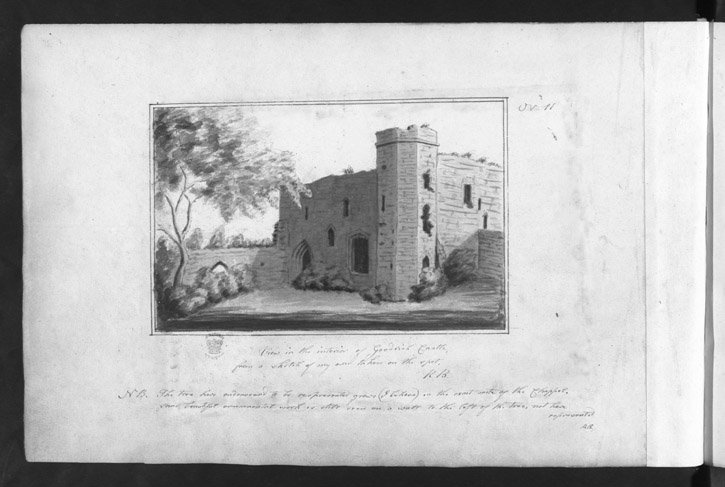 View in the interior of Goodrich Castle,
from a sketch of my own taken on the spot.
N.B. The tree here endeavoured to be represented grows (I believe) in the east side of the Chappel,
some beautiful ornamental work is still seen on a wall to the left of the tree, not here
represented